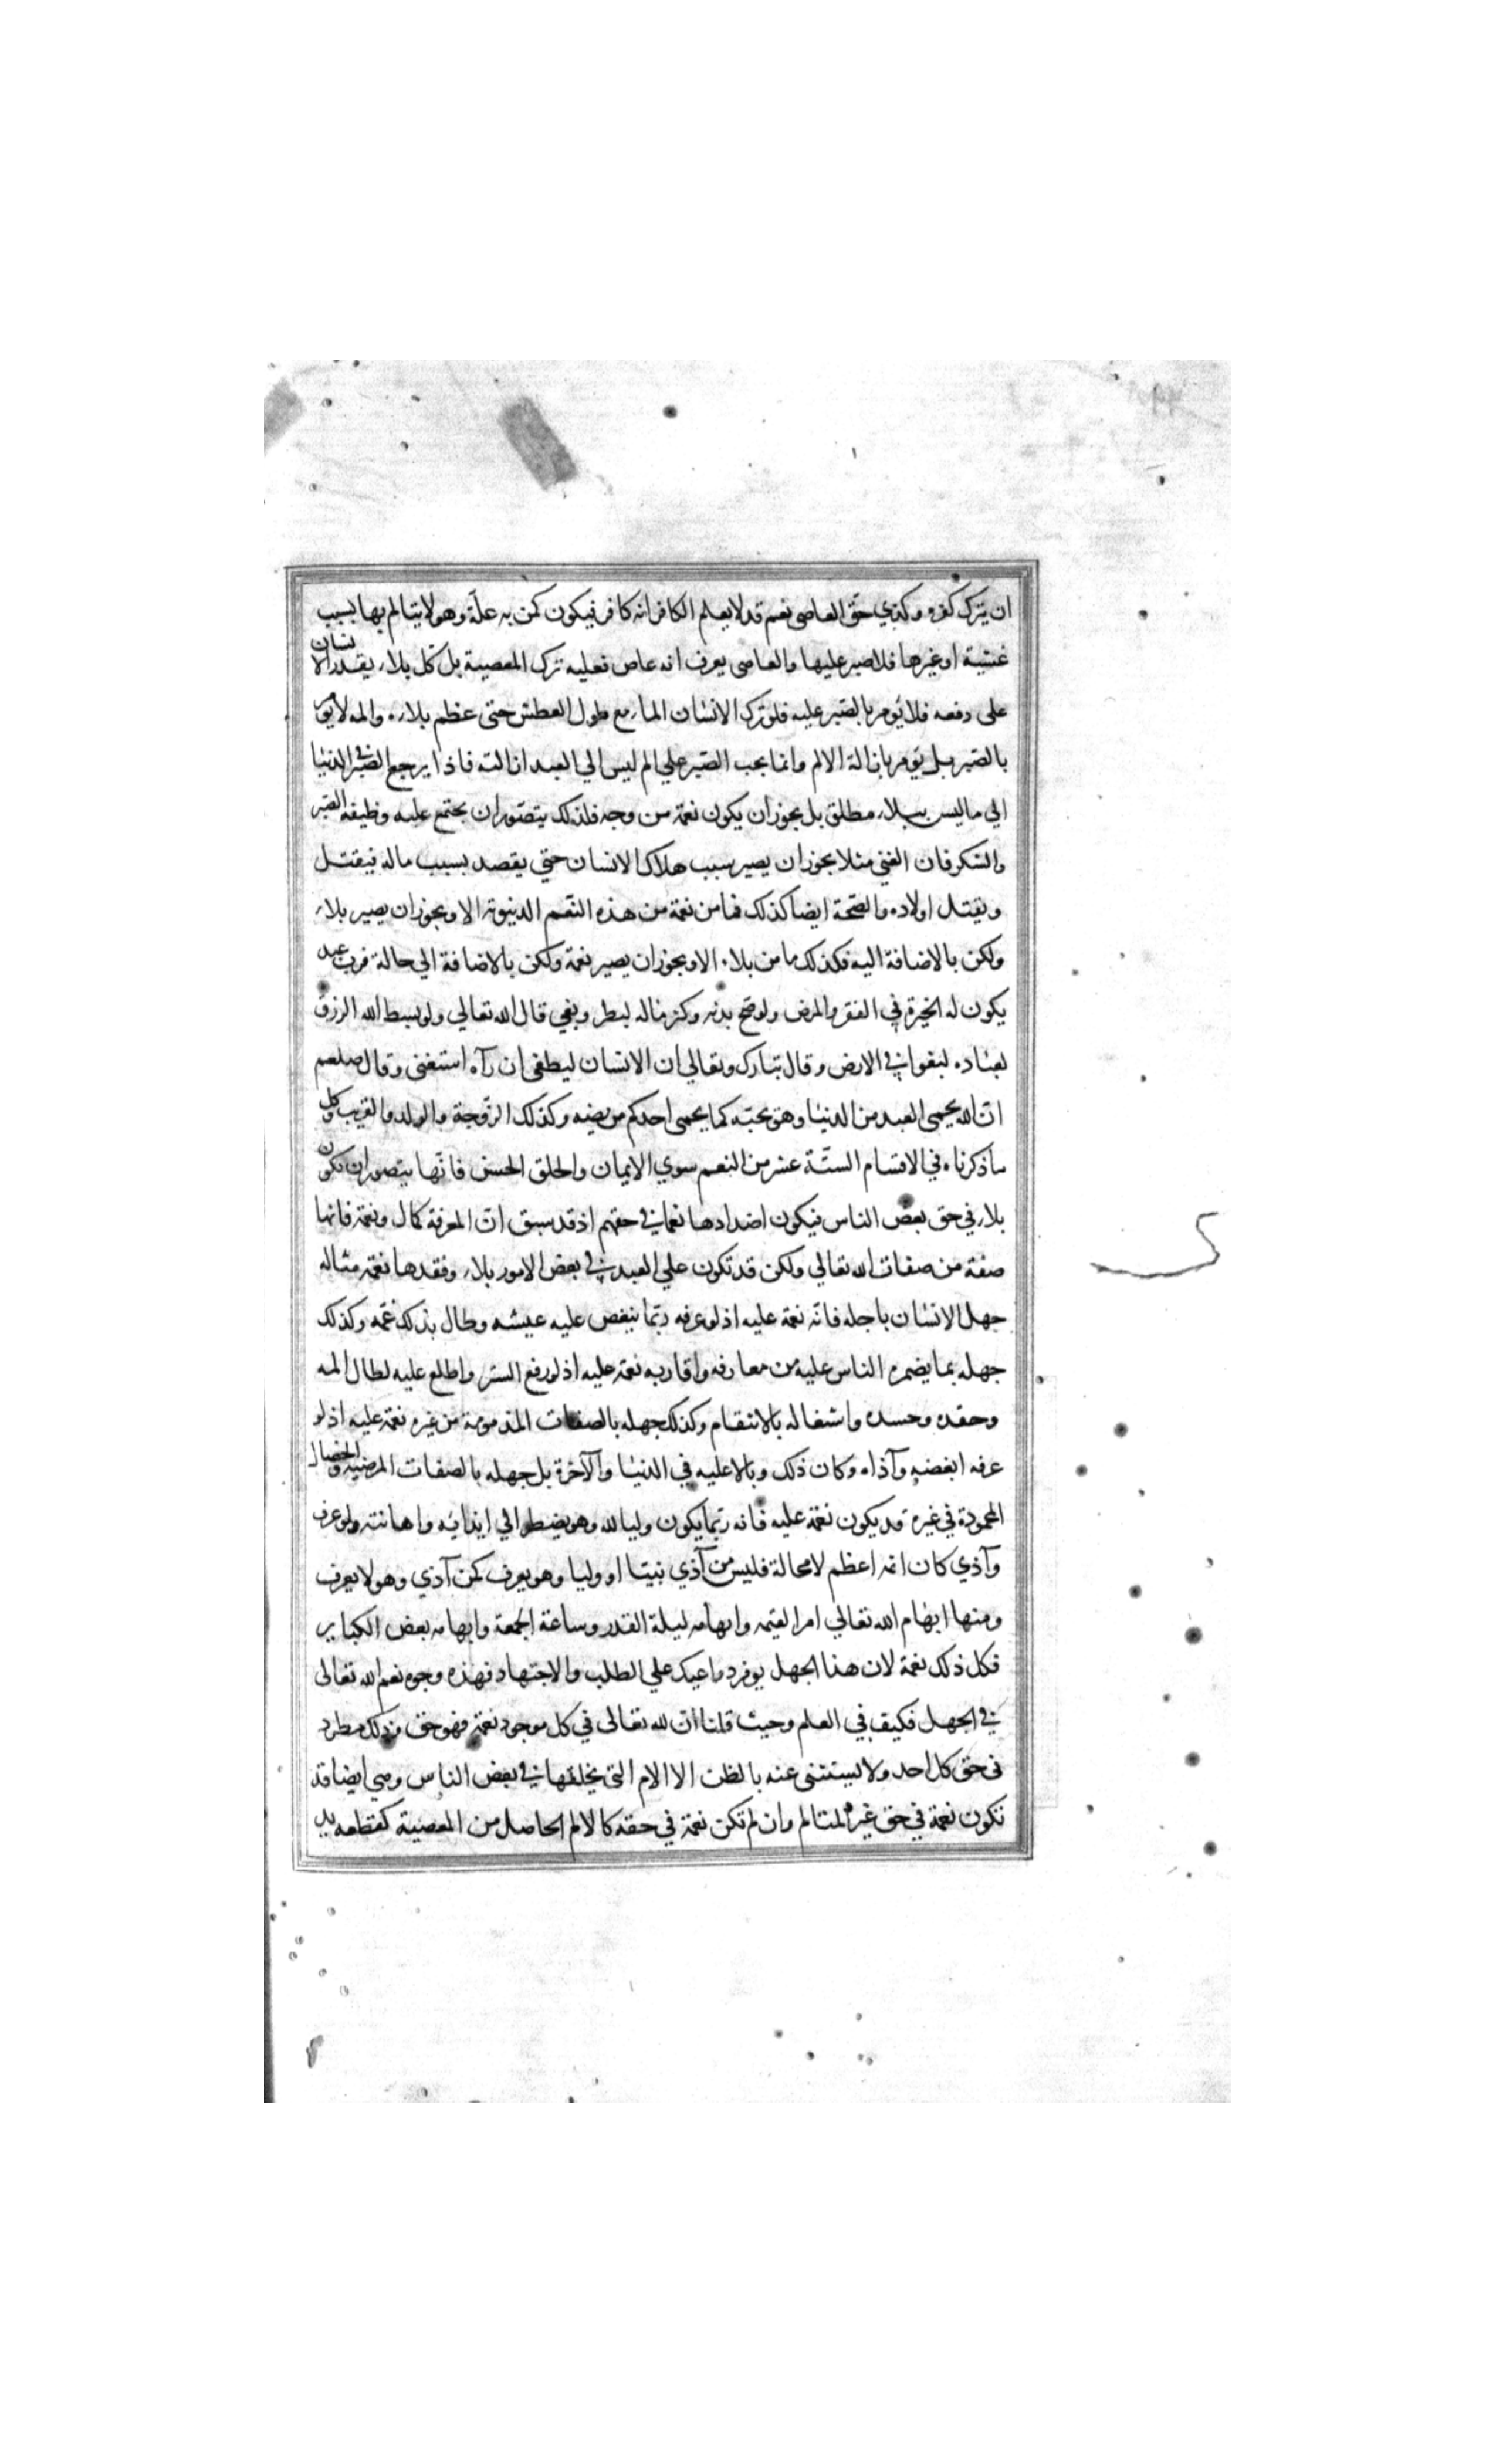 ان يترك كفره وكذي حق العاصى نعم قد لا يعلم الكافر انه كافر فيكون كمن به علة وهو لا يتالم بها بسبب
غشية او غيرها فلا صبر عليها والعاصى يعرف انه عاص فعليه ترك المعصية بل كل بلاء يقدر الانسان
على دفعه فلا يؤمر بالصبر عليه فلو ترك الانسان الماء مع طول العطش حتى عظم بلاره والمه لا يؤمر
بالصبر بل يؤمر بازالة الالم وانما يجب الصبر علي الم ليس الي العبد ازالته فاذا يرجع الصبر في الدنيا
الي ما ليس ببلاء مطلق بل يجوز ان يكون نعمة من وجه فلذلك يتصور ان يجتمع عليه وظيفة الصبر
والشكر فان الغني مثلا يجوز ان يصير سبب هلاك الانسان حتي يقصد بسبب ماله فيقتل
ويقتل اولاده والصحة ايضا كذلك فما من نعمة من هذه النعم الدنيوية الا ويجوز ان يصير بلاء
ولكن بالاضافة اليه فكذلك ما من بلاء الا ويجوز ان يصير نعمة ولكن بالاضافة الي حاله فرب عبد
يكون له الخيرة في الفقر والمرض ولو صح بدنه وكثر ماله لبطر وبغي قال الله تعالي ولو بسط الله الرزق
لعباده لبغوا في الارض وقال تبارك وتعالي ان الانسان ليطغى ان رآه استغنى وقال صلعم
ان الله يحمى العبد من الدنيا وهو يحبه كما يحمى احدكم مريضه وكذلك الزوجة والولد والقريب وكل
ما ذكرناه في الاقسام الستة عشر من النعم سوي الايمان والخلق الحسن فانها يتصور ان تكون
بلاء في حق بعض الناس فيكون اضدادها نعما في حقهم اذ قد سبق ان المعرفة كمال ونعمة فانها
صفة من صفات الله تعالي ولكن قد تكون علي العبد في بعض الامور بلاء وفقدها نعمة مثاله
جهل الانسان باجله فانه نعمة عليه اذ لو عرفه ربما ينغص عليه عيشه وطال بذلك غمه وكذلك
جهله بما يضمره الناس عليه من معارفه واقاربه نعمة عليه اذ لو رفع الستر واطلع عليه لطال المه
وحقده وحسده واشغاله بالانتقام وكذلك جهله بالصفات المذمومة من غيره نعمة عليه اذ لو
عرفه ابغضه وآذاه وكان ذلك وبالا عليه في الدنيا والآخرة بل جهله بالصفات المرضية والخصال
المحمودة في غيره قد يكون نعمة عليه فانه ربما يكون وليا لله وهو يضطر الي ايذائه واهانته ولو عرف
وآذي كان اثمه اعظم لا محالة فليس من آذي نبيا او وليا وهو يعرف كمن آذي وهو لا يعرف
ومنها ابهام الله تعالي امر القيمه وابهامه ليلة القدر وساعة الجمعة وابهامه بعض الكباير
فكل ذلك نعمة لان هذا الجهل يوفر دواعيك علي الطلب والاجتهاد فهذه وجوه نعم الله تعالى
في الجهل فكيف في العلم وحيث قلنا ان لله تعالى في كل موجود نعمة فهو حق وذلك مطرد
فى حق كل احد ولا يستثنى عنه بالظن الا الالام التى يخلقها في بعض الناس وهي ايضا قد
تكون نعمة في حق غير المتالم وان لم تكن نعمة في حقه كالالم الحاصل من المعصية كقطعه يد